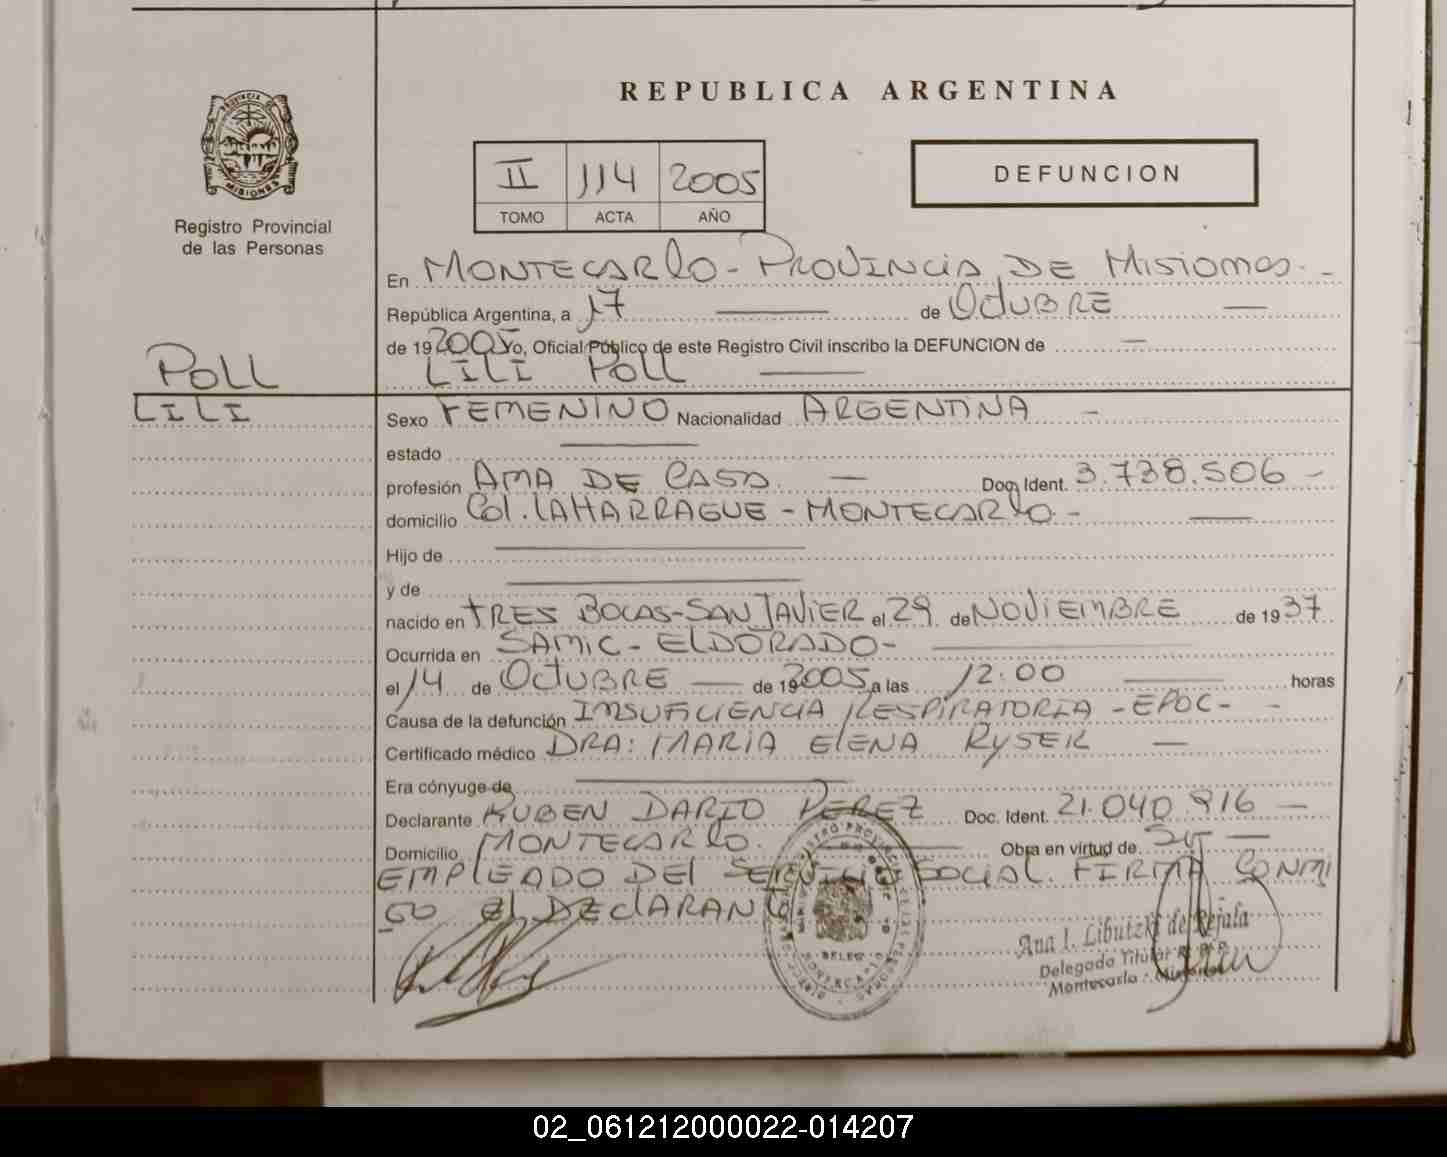 REPUBLICA ARGENTINA
PROVINCIA DE MISIONES
Registro Provincial
de las Personas
II 114 2005
TOMO ACTA AÑO
DEFUNCION
En MONTECARLO - PROVINCIA DE MISIONES. -
República Argentina, a 17 de OCTUBRE
de 19 2005 yo, Oficial Público de este Registro Civil inscribo la DEFUNCION de
LILI POLL
POLL
LILI
Sexo FEMENINO Nacionalidad ARGENTINA -
estado
profesión AMA DE CASA. Doc. Ident. 3.738.506 -
domicilio COL. LAHARRAGUE - MONTECARLO -
Hijo de
y de
nacido en TRES BOCAS-SAN JAVIER el 29 de NOVIEMBRE de 1937
Ocurrida en SAMIC - ELDORADO -
el 14 de OCTUBRE de 19 2005 a las 12.00 horas
Causa de la defunción INSUFICIENCIA RESPIRATORIA - EPOC - -
Certificado médico DRA: MARIA ELENA RYSER
Era cónyuge de
Declarante RUBEN DARIO PEREZ Doc. Ident. 21.040.916 -
Domicilio MONTECARLO. Obra en virtud de SU
EMPLEADO DEL SERVICIO SOCIAL. FIRMA CONMI
GO EL DECLARANTE
Ana I. Libutzki de Rejala
Delegada Titular R. P. P.
Montecarlo - Misiones
02_061212000022-014207